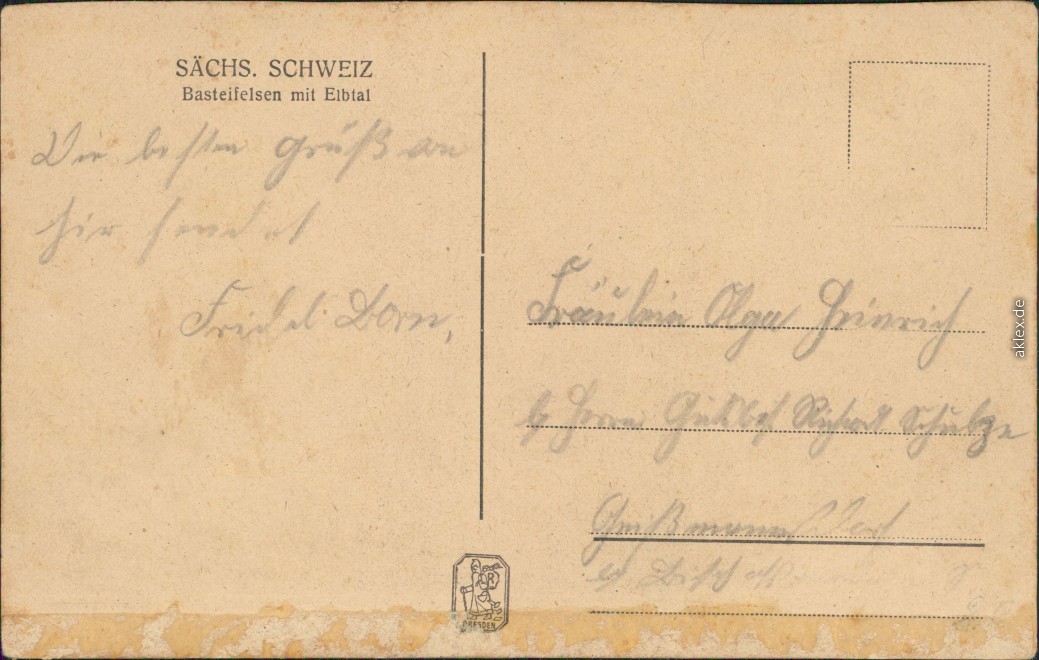 SÄCHS. SCHWEIZ
Basteifelsen mit Elbtal
Die besten Grüß an
hir sendet
Friedel Dorn,
Fräulein Olga Heinrich
b Herrn Gutsbes Richard Schulze
Geißmannsdorf
b Bisch
R
DRESDEN
aklex.de